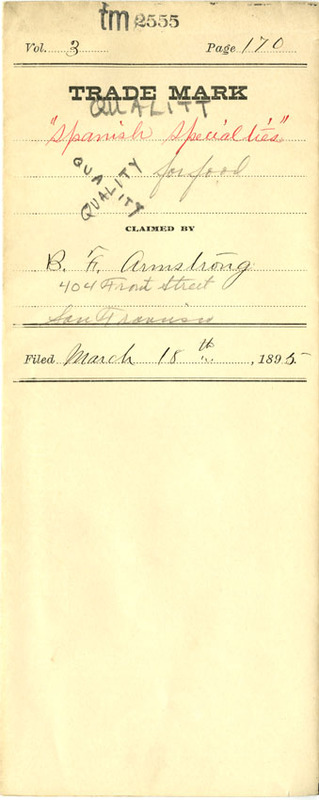 tm 2555
Vol. 3 Page 170
TRADE MARK
QUALITY
"Spanish Specialties"
for food
QUA
QUALITY
ITY
CLAIMED BY
B. F. Armstrong
404 Front Street
San Francisco
Filed March 18th, 1895